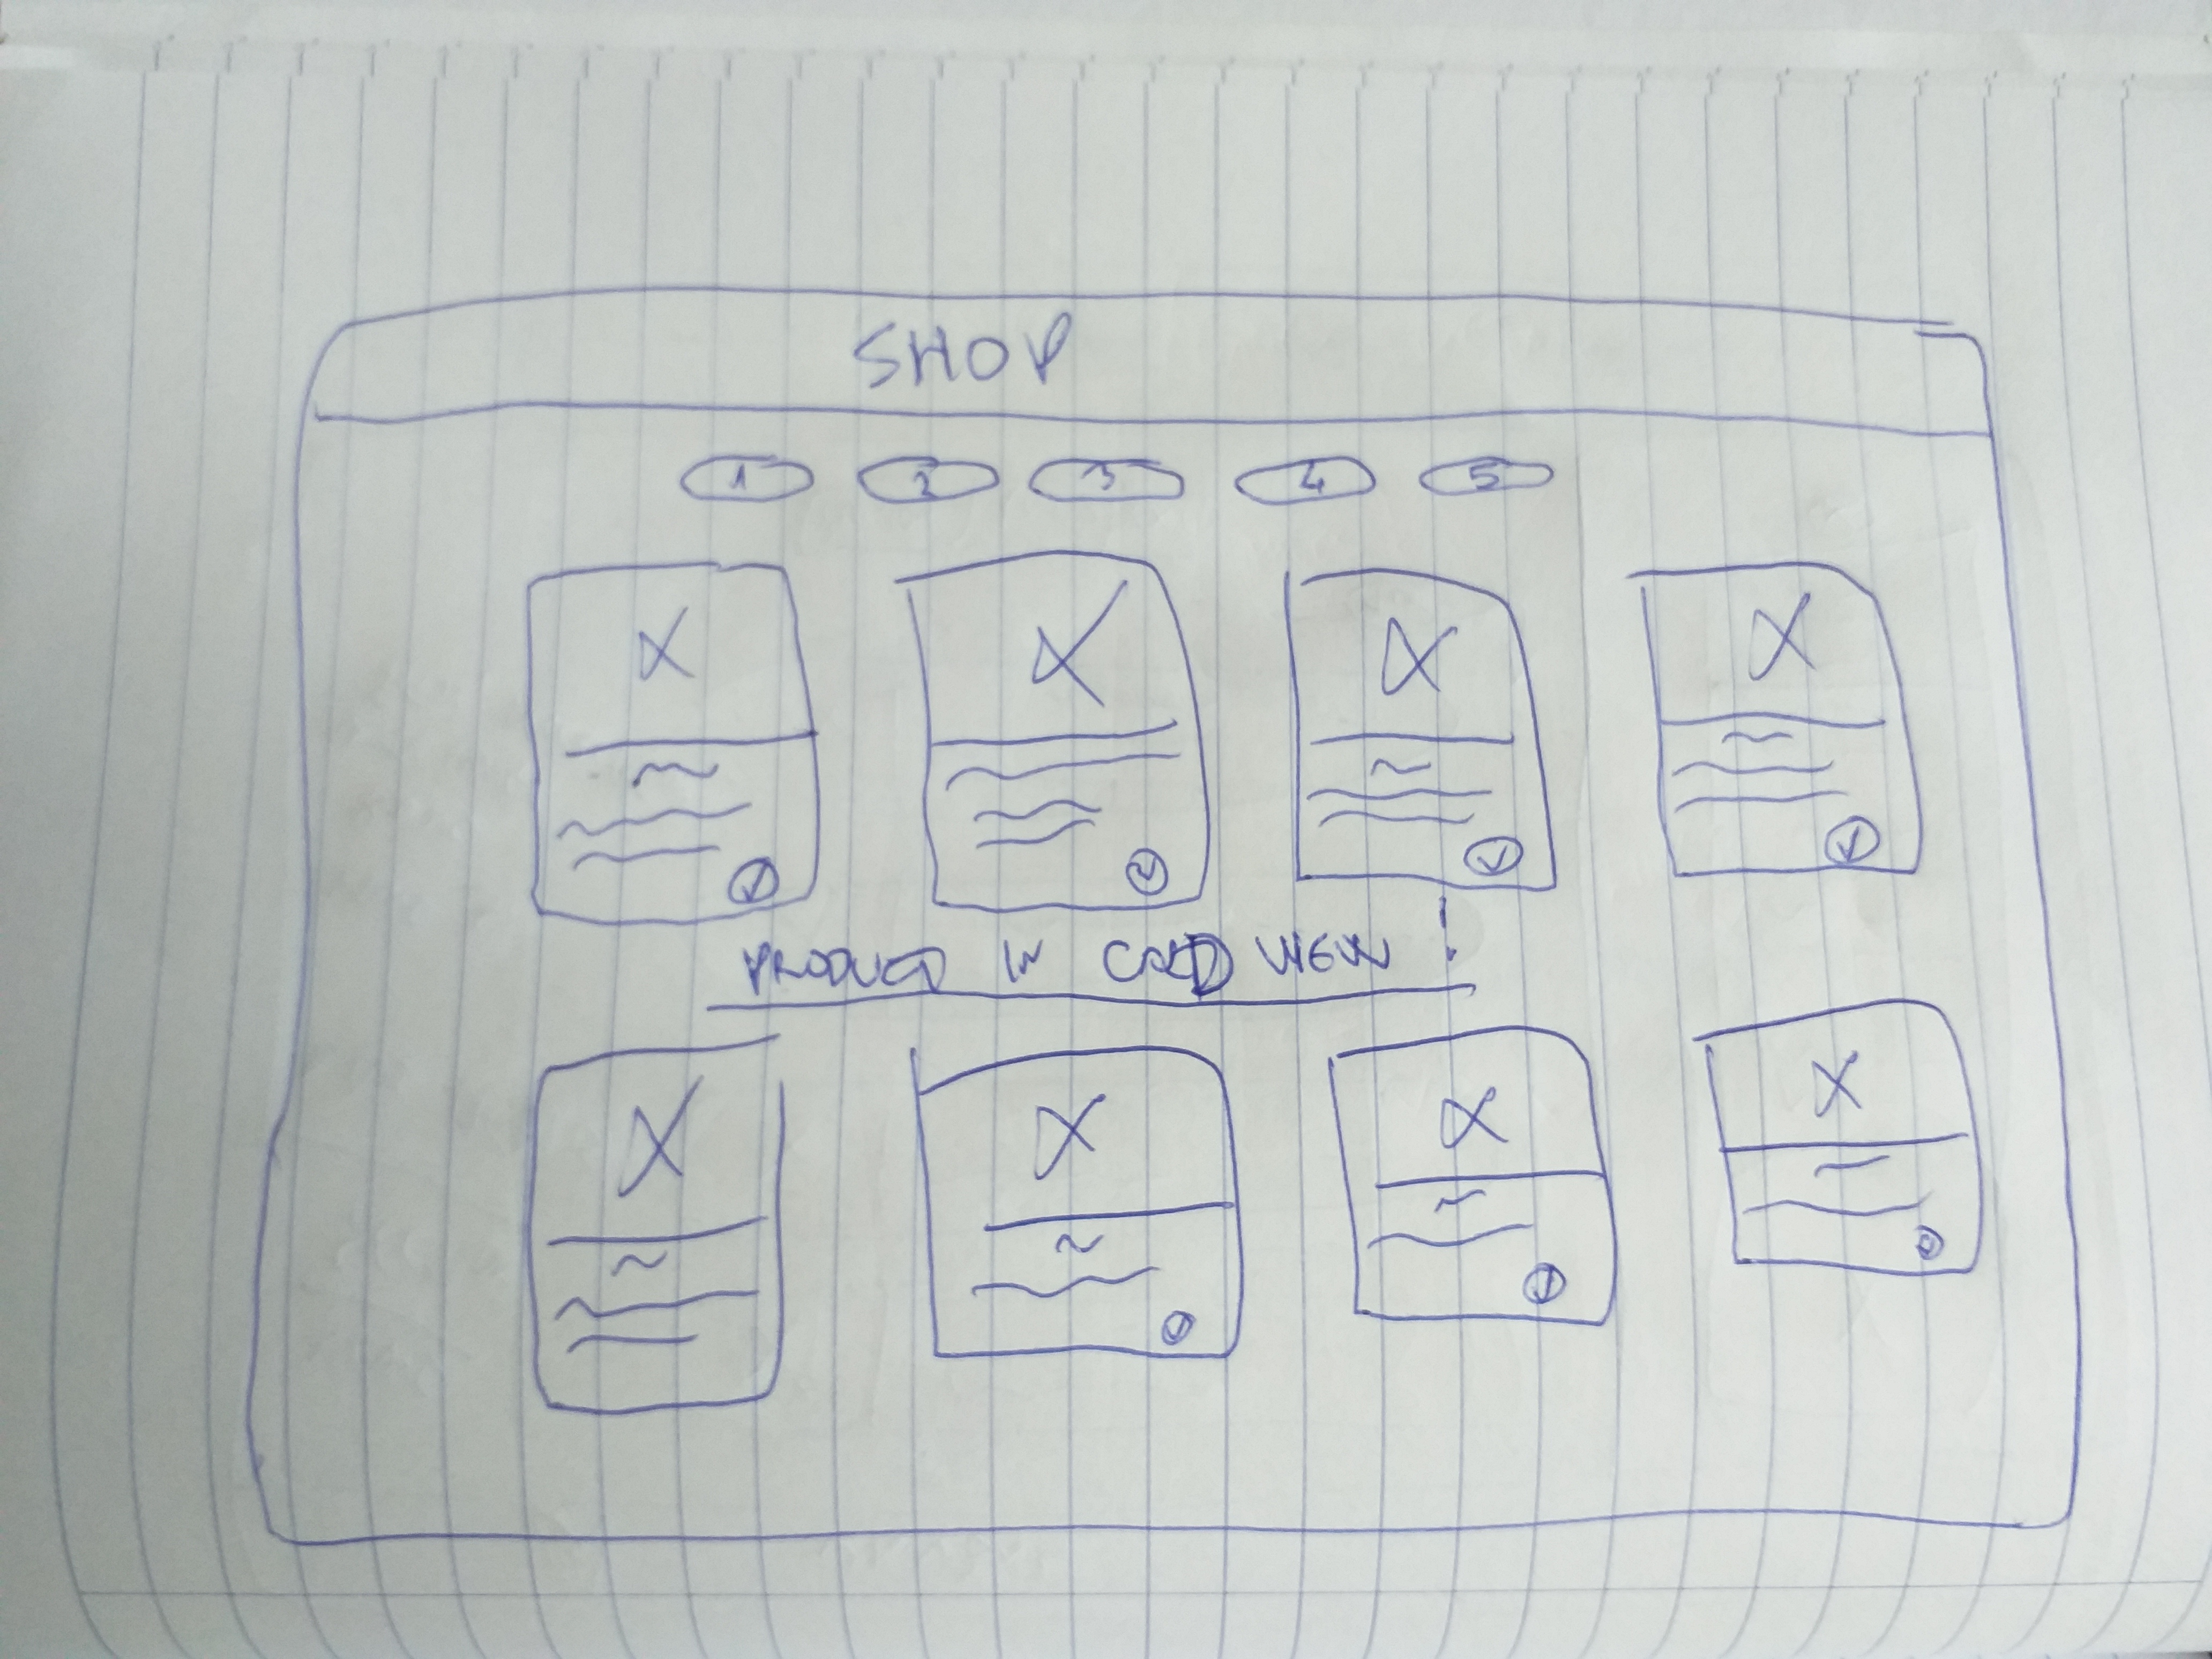 SHOP
1 2 3 4 5
PRODUCT IN CARD VIEW !